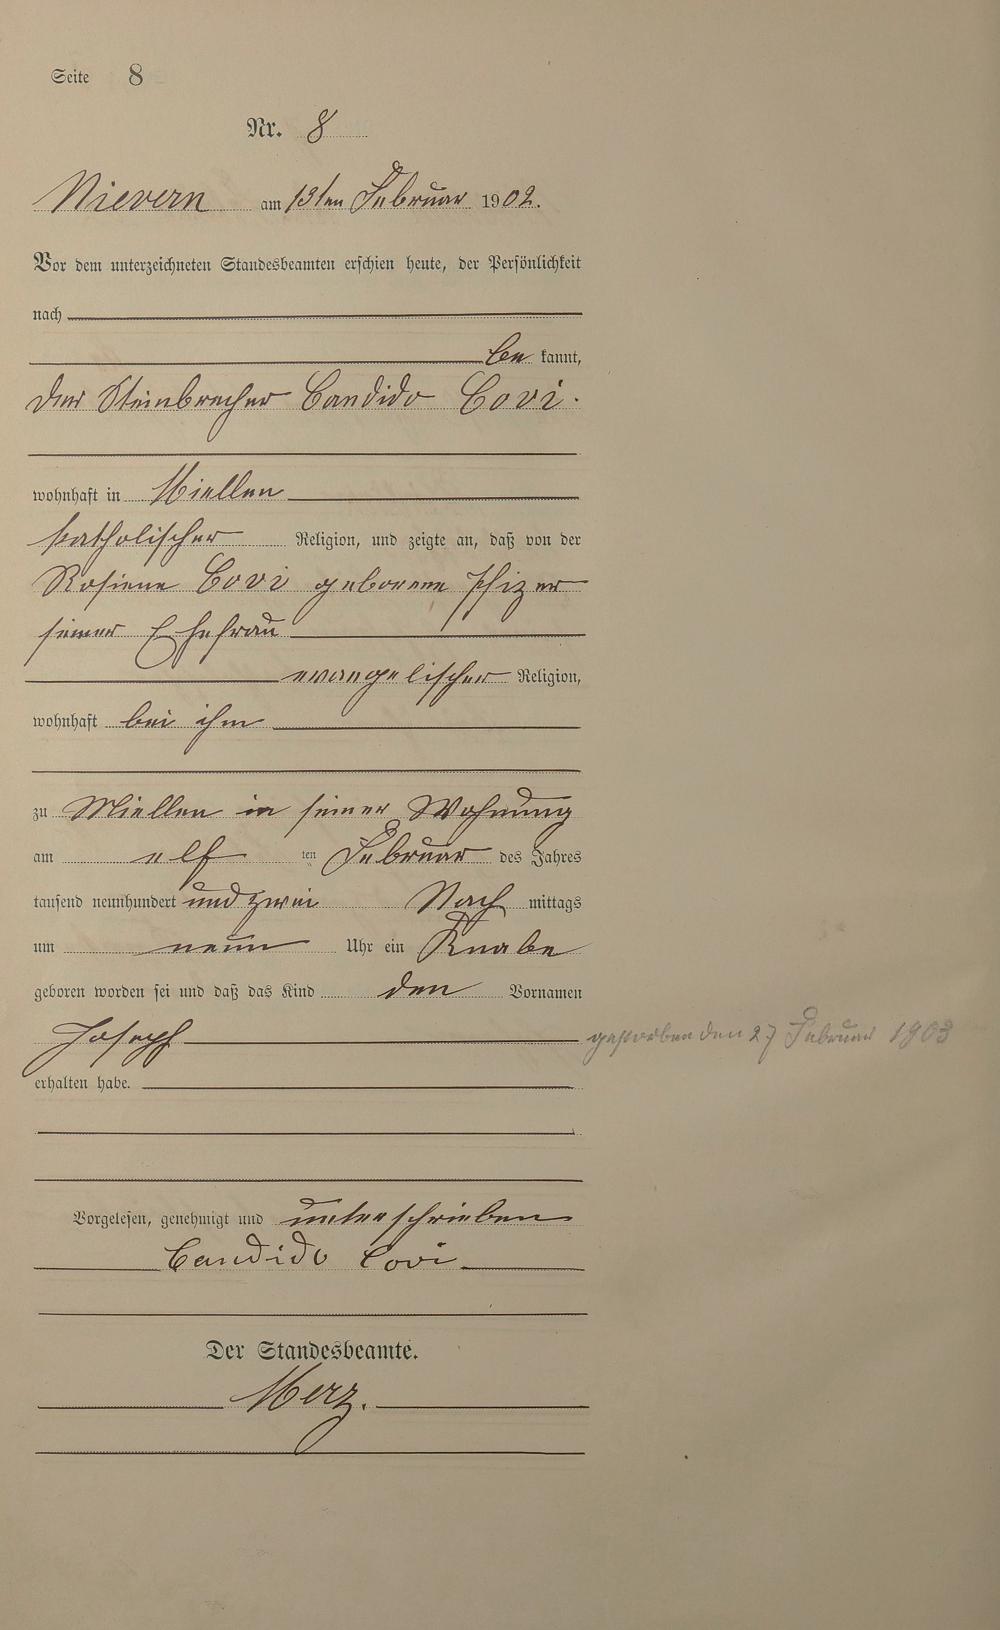 Seite 8
Nr. 8
Nievern am 13ten Februar 1902.
Vor dem unterzeichneten Standesbeamten erschien heute, der Persönlichkeit
nach
be kannt,
der Steinbrecher Candido Covi.
wohnhaft in Miellen
katholischer Religion, und zeigte an, daß von der
Rosiene Covi geborene Pfizer
seiner Ehefrau
evangelischer Religion,
wohnhaft bei ihm
zu Miellen in seiner Wohnung
am elf ten Februar des Jahres
tausend neunhundert und zwei Nach mittags
um neun Uhr ein Knabe
geboren worden sei und daß das Kind den Vornamen
Joseph gestorben den 27 Februar 1903
erhalten habe.
Vorgelesen, genehmigt und unterschrieben
Candido Covi
Der Standesbeamte.
Merz.